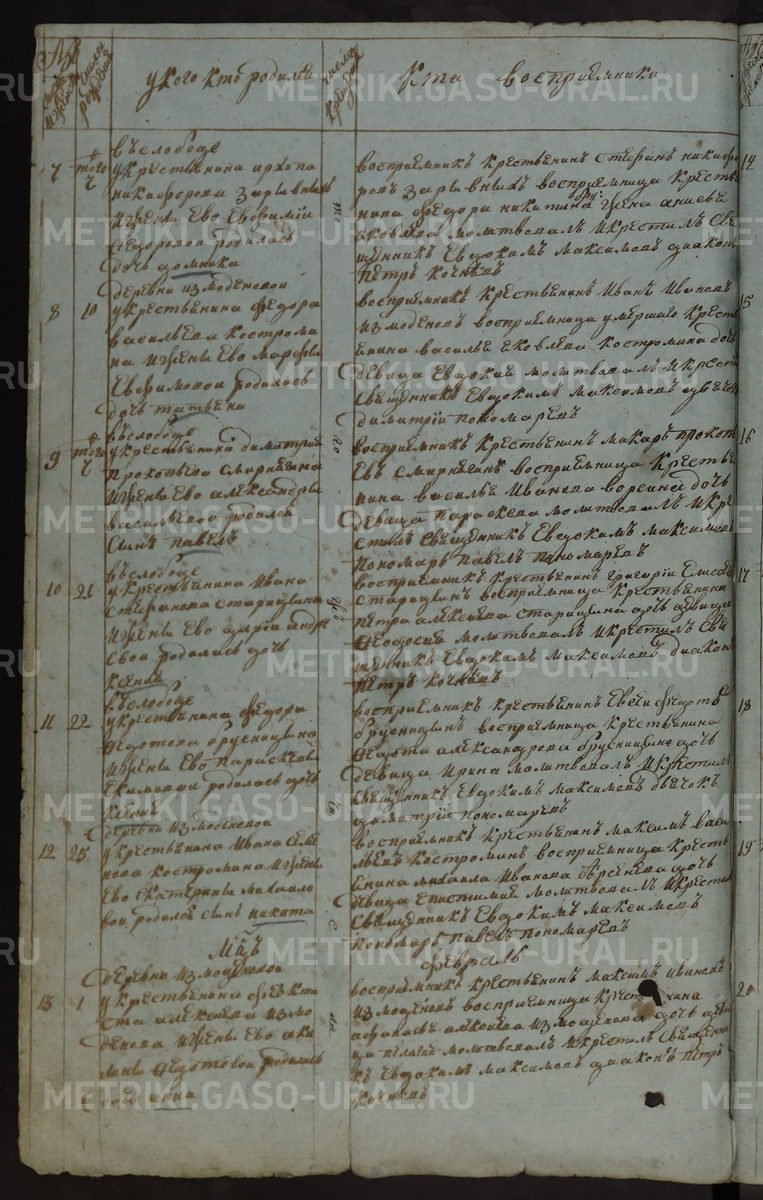 у кого кто родился
Кто восприемники
7
того ж
въ слободе
у крестьянина архипа
никифорова
и жены Ево Евфимии
федоровой родилась
дочь домника
восприемникъ крестьянинъ стефанъ никифо
ровъ восприемница крестья
нина федора никитина жена
молитвовалъ и крестилъ Свя
щенникъ Евдокимъ Максимовъ диаконъ
Петръ Кочневъ
8
10
деревни измоденовой
у крестьянина федора
васильева костроми
на и жены Ево марфы
Евфимовой родилась
дочь татьяна
восприемникъ крестьянинъ Иванъ Ивановъ
измоденовъ восприемница умершаго крестья
янина василья яковлева костромина дочь
девица Евдокия молитвовалъ и крестилъ
Священникъ Евдокимъ Максимовъ дьячокъ
димитрий пономаревъ
9
того ж
въ слободе
у крестьянина димитрия
прокопьева смирнягина
и жены Ево александры
васильевой родился
сынъ павелъ
восприемникъ крестьянинъ макаръ прокопь
евъ смирнягинъ восприемница крестья
нина василья Иванова дочь
девица параскева молитвовалъ и кре
стилъ священникъ Евдокимъ Максимовъ
пономарь павелъ пономаревъ
10
21
въ слободе
у крестьянина Ивана
стефанова старицына
и жены Ево дарьи андре
евой родилась дочь
ксения
восприемникъ крестьянинъ григорий Елисеевъ
старицынъ восприемница крестьянина
петра алексеева старицына дочь девица
феодосия молитвовалъ и крестилъ Свя
щенникъ Евдокимъ Максимовъ диаконъ
Петръ Кочневъ
11
22
въ слободе
у крестьянина федора
федотова брусницына
и жены Ево параскевы
Екимовой родилась дочь
ксения
восприемникъ крестьянинъ федотовъ
брусницынъ восприемница крестьянина
федота александрова брусницына дочь
девица Ирина молитвовалъ и крестилъ
священникъ Евдокимъ Максимовъ дьячокъ
димитрий пономаревъ
12
25
деревни измоденовой
у крестьянина Ивана семе
нова костромина и жены
Ево Екатерины михайло
вой родился сынъ никита
восприемникъ крестьянинъ максимъ васи
льевъ костроминъ восприемница крестья
янина михаила Иванова Арсенева дочь
девица Епистимия молитвовалъ и крестилъ
Священникъ Евдокимъ Максимовъ
пономарь павелъ пономаревъ
Мцъ
февраль
13
1
деревни измоденовой
у крестьянина
алексеева измо
денова и жены Ево аки
лины федотовой родилась
дочь анна
восприемникъ крестьянинъ максимъ Ивановъ
измоденовъ восприемница крестьянина
афанасья алексеева измоденова дочь деви
ца пелагия молитвовалъ и крестилъ Священни
къ Евдокимъ Максимовъ диаконъ Петръ
Кочневъ
14
15
16
17
18
19
20
METRIKI.GASO-URAL.RU